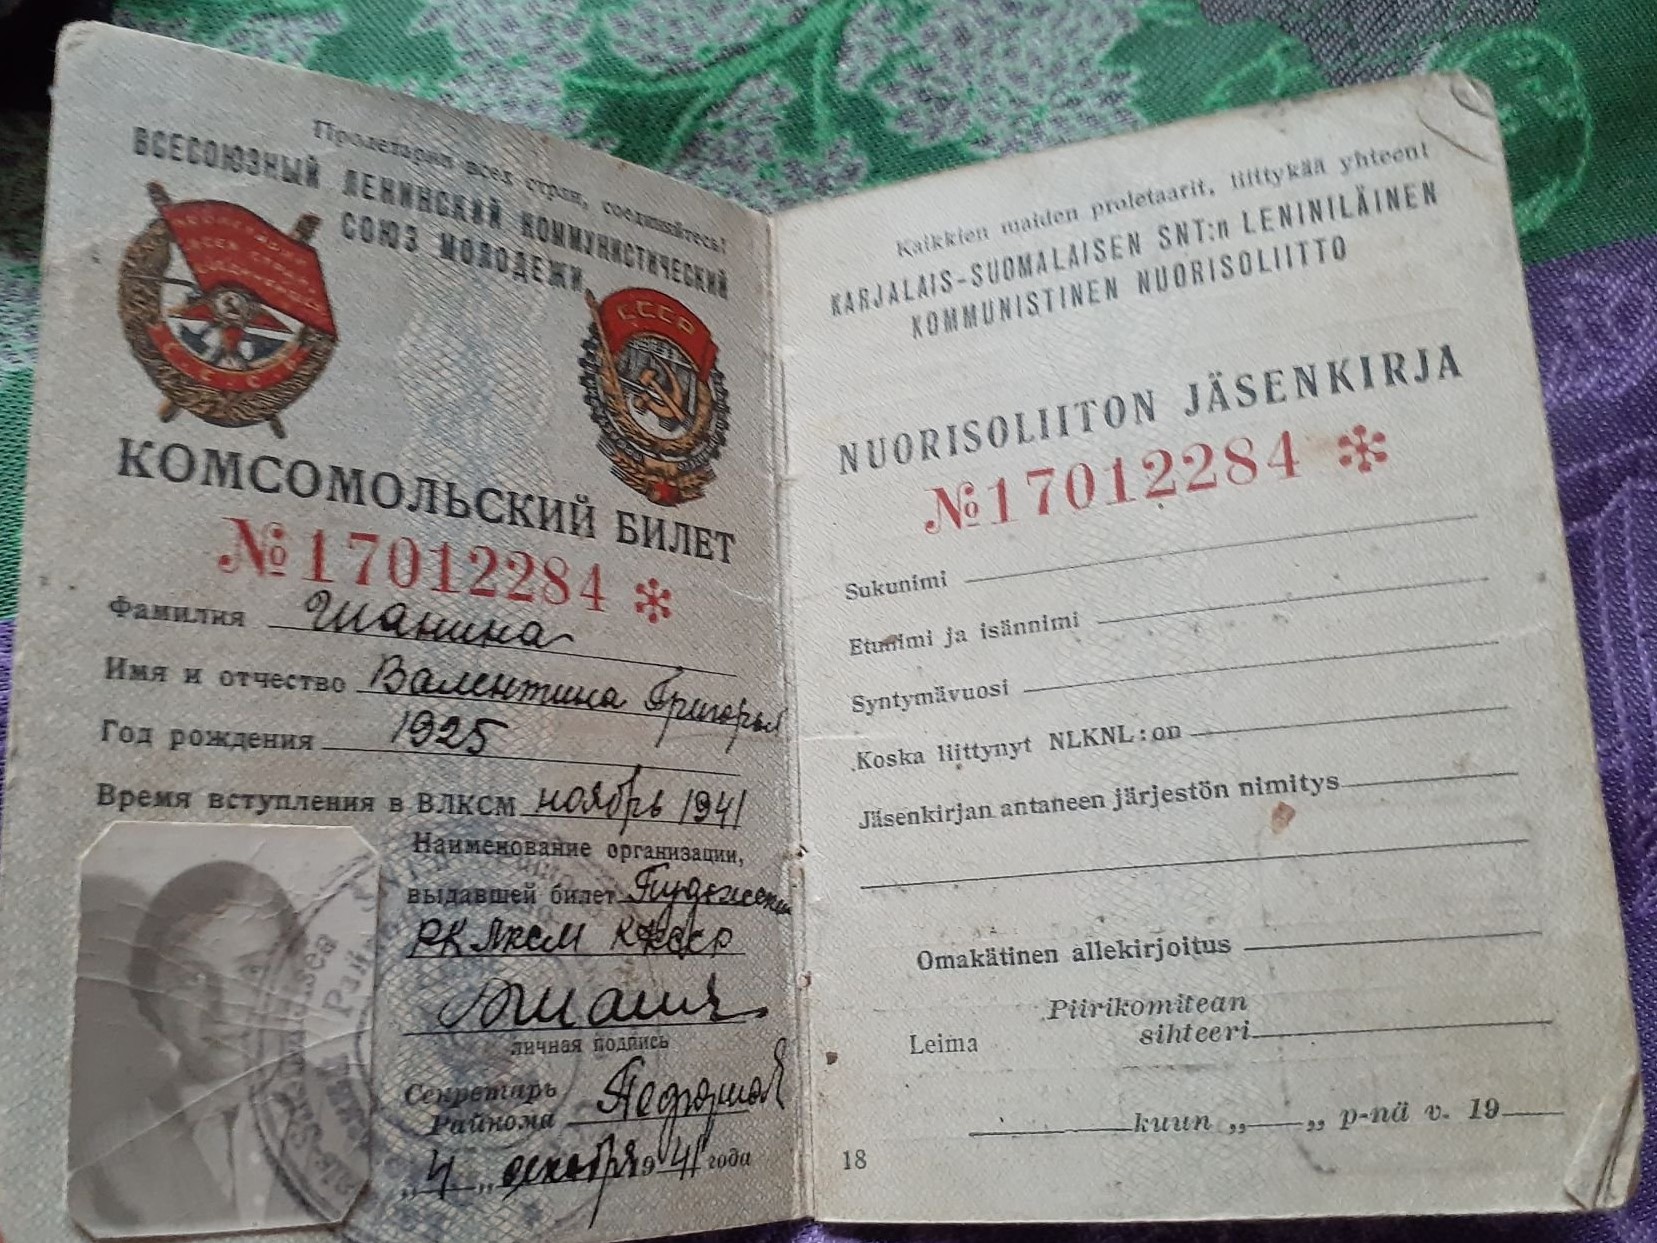 Пролетарии всех стран, соединяйтесь!
ВСЕСОЮЗНЫЙ ЛЕНИНСКИЙ КОММУНИСТИЧЕСКИЙ
СОЮЗ МОЛОДЕЖИ
СССР
КОМСОМОЛЬСКИЙ БИЛЕТ
№17012284 *
Фамилия Шанина
Имя и отчество Валентина Григорьев
Год рождения 1925
Время вступления в ВЛКСМ ноябрь 1941
Наименование организации,
выдавшей билет Пудожский
РК ЛКСМ КФССР
личная подпись
Секретарь
Райкома
„4„ декабря 1941 года
Kaikkien maiden proletaarit, liittykää yhteen!
KARJALAIS-SUOMALAISEN SNT:n LENINILÄINEN
KOMMUNISTINEN NUORISOLIITTO
NUORISOLIITON JÄSENKIRJA
№17012284 *
Sukunimi
Etunimi ja isännimi
Syntymävuosi
Koska liittynyt NLKNL:on
Jäsenkirjan antaneen järjestön nimitys
Omakätinen allekirjoitus
Piirikomitean
Leima sihteeri
kuun „ „ p-nä v. 19
18